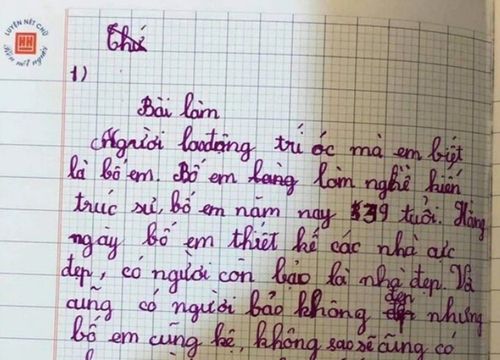 LUYỆN NÉT CHỮ
HH
Rèn nết người
Thứ
1)
Bài làm
Người lao động trí óc mà em biết
là bố em. Bố em làng làm nghề kiến
trúc sư, bố em năm nay 39 tuổi. Hàng
ngày bố em thiết kế các nhà cực
đẹp, có người còn bảo là nhà đẹp. Và
cũng có người bảo không đẹp đẹp nhưng
bố em cũng kệ, không sao sẽ cũng có